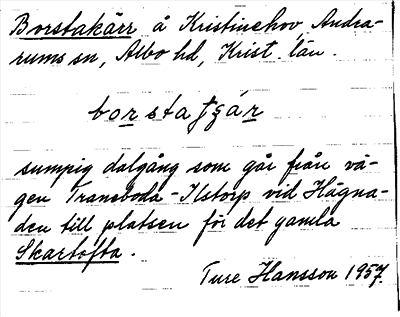 Borstakärr å Kristinehov, Andra-
rums sn, Albo hd, Krist. län.
sumpig dalgång som går från vä-
gen Traneboda - Ilstorp vid Hägna-
den till platsen för det gamla
Skartofta.
Ture Hansson 1957.